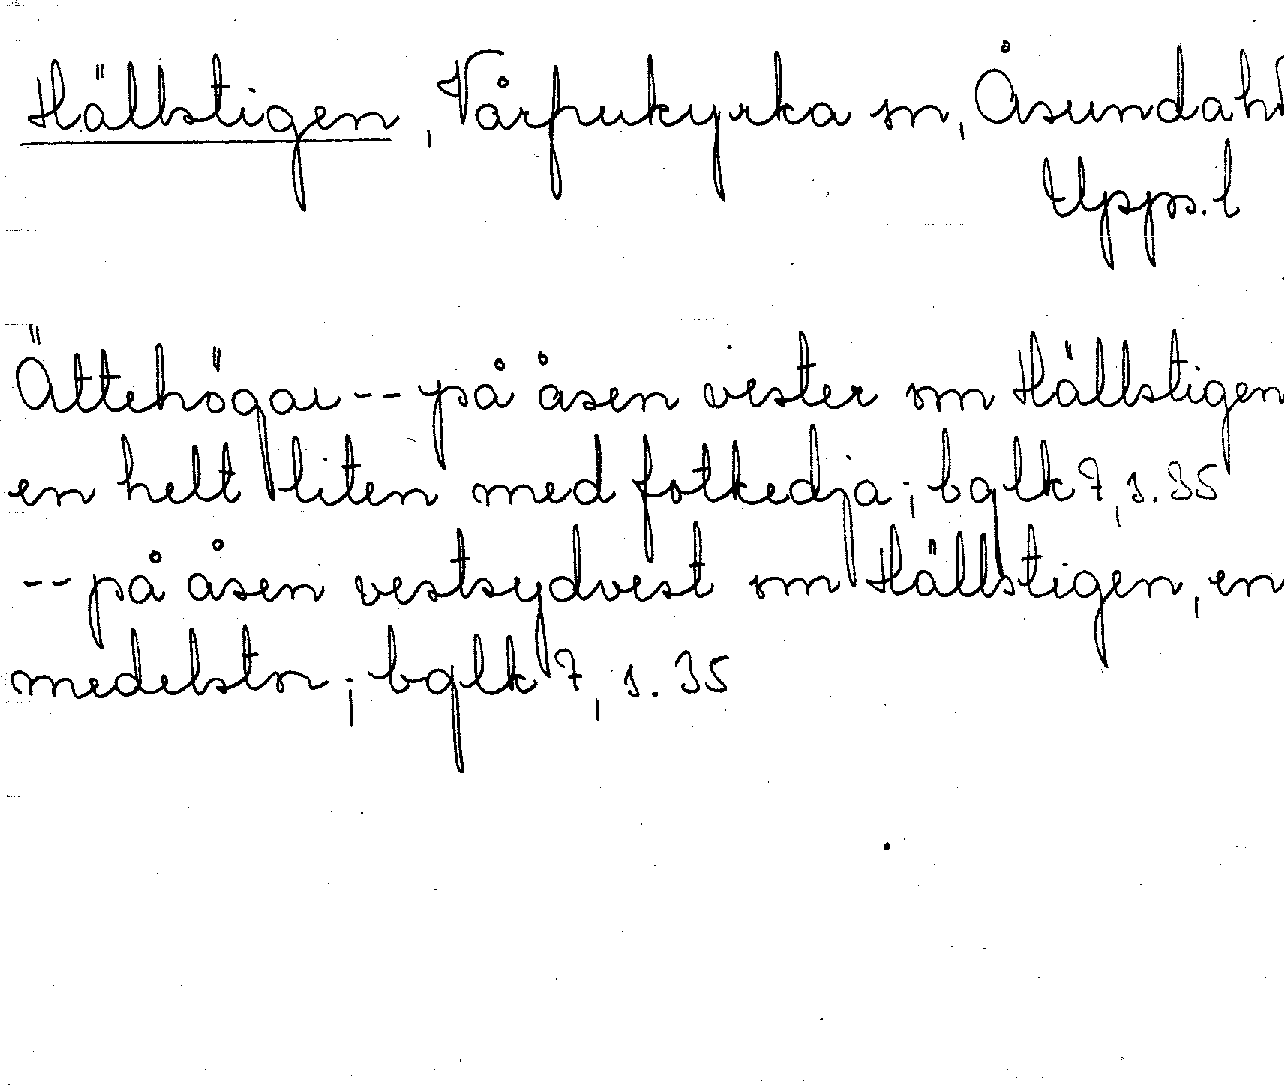 Hällstigen, Vårfrukyrka sn, Åsundahd
Upps. l
Ättehögar -- på åsen vester om Hällstigen
en helt liten med fotkedja; bglk 7, s. 35
-- på åsen vestsydvest om Hällstigen, en
medelstor; bglk 7, s. 35